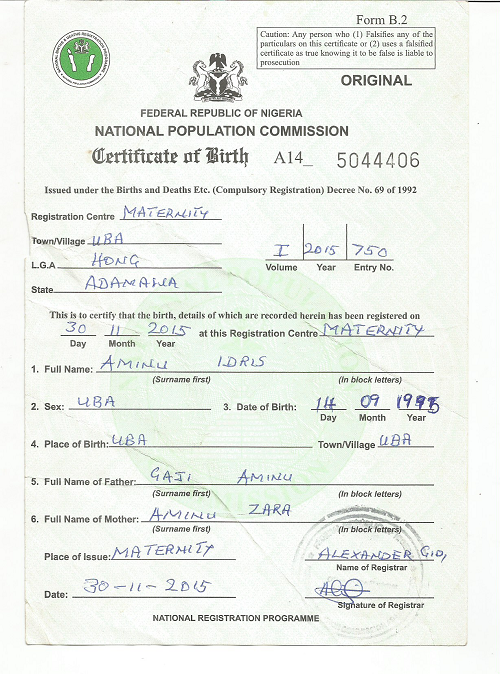 Form B.2
Caution: Any person who (1) Falsifies any of the
particulars on this certificate or (2) uses a falsified
certificate as true knowing it to be false is liable to
prosecution
ORIGINAL
FEDERAL REPUBLIC OF NIGERIA
NATIONAL POPULATION COMMISSION
Certificate of Birth A14_ 5044406
Issued under the Births and Deaths Etc. (Compulsory Registration) Decree No. 69 of 1992
Registration Centre MATERNITY
Town/Village UBA
L.G.A HONG
State ADAMAWA
I 2015 750
Volume Year Entry No.
This is to certify that the birth, details of which are recorded herein has been registered on
30 11 2015 at this Registration Centre MATERNITY
Day Month Year
1. Full Name: AMINU IDRIS
(Surname first) (In block letters)
2. Sex: UBA 3. Date of Birth: 14 09 199
Day Month Year
4. Place of Birth: UBA Town/Village UBA
5. Full Name of Father: GAJI AMINU
(Surname first) (In block letters)
6. Full Name of Mother: AMINU ZARA
(Surname first) (In block letters)
Place of Issue: MATERNITY ALEXANDER GID,
Name of Registrar
Date: 30-11-2015
Signature of Registrar
NATIONAL REGISTRATION PROGRAMME